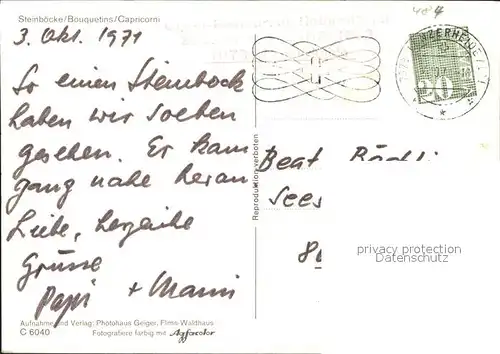 Steinböcke/Bouquetins/Capricorni
484
3. Okt. 1971
So einen Steinbock
haben wir soeben
gesehen. Er kam
ganz nahe heran
Liebe, herzliche
Grüsse
Papi + Mami
Reproduktion verboten
20
Beat
Sees
8
privacy protection
Datenschutz
Aufnahme und Verlag: Photohaus Geiger, Flims-Waldhaus
C 6040 Fotografiere farbig mit Agfacolor